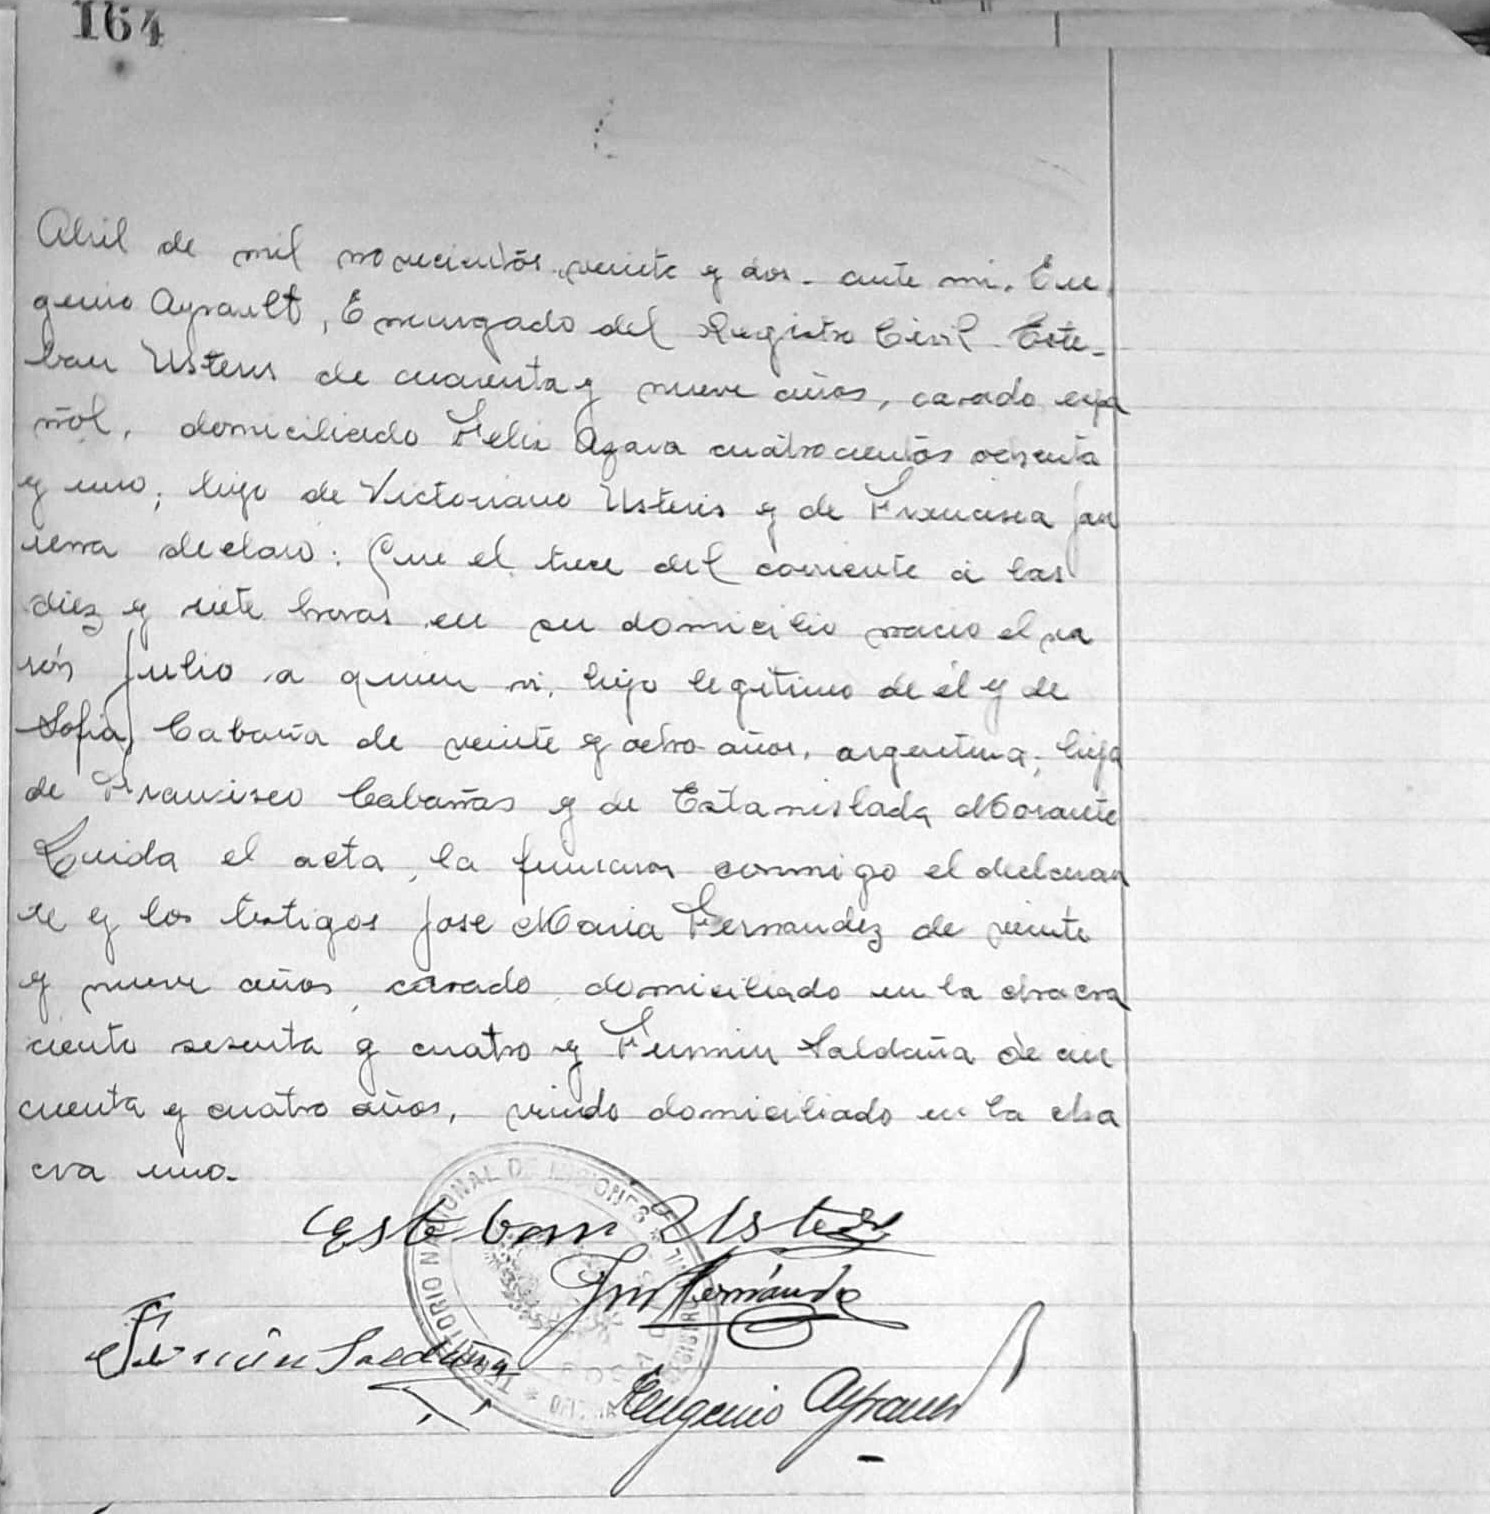 164
Abril de mil novecientos veinte y dos. ante mi, Eu
genio Ayrault, Encargado del Registro Civil Este-
ban Usteris de cuarenta y nueve años, casado espa
ñol, domiciliado Felix Azara cuatrocientos ochenta
y uno; hijo de Victoriano Usteris y de Francisca Jau
declaró: Que el trece del corriente á las
diez y siete horas en su domicilio nació el va
rón Julio a quien vi, hijo legitimo de él y de
Sofia Cabaña de veinte y ocho años, argentina; hija
de Francisco Cabañas y de Estanislada Morante
Leida el acta, la firmaron conmigo el declaran
te y los testigos José Maria Fernandez de veinte
y nueve años, casado, domiciliado en la chacra
ciento sesenta y cuatro y Fermin Saldaña de cin
cuenta y cuatro años, viudo domiciliado en la cha
cra uno.
TERRITORIO NACIONAL DE MISIONES
Esteban Usteris
Fernández
Fermín Saldaña
Eugenio Ayrault